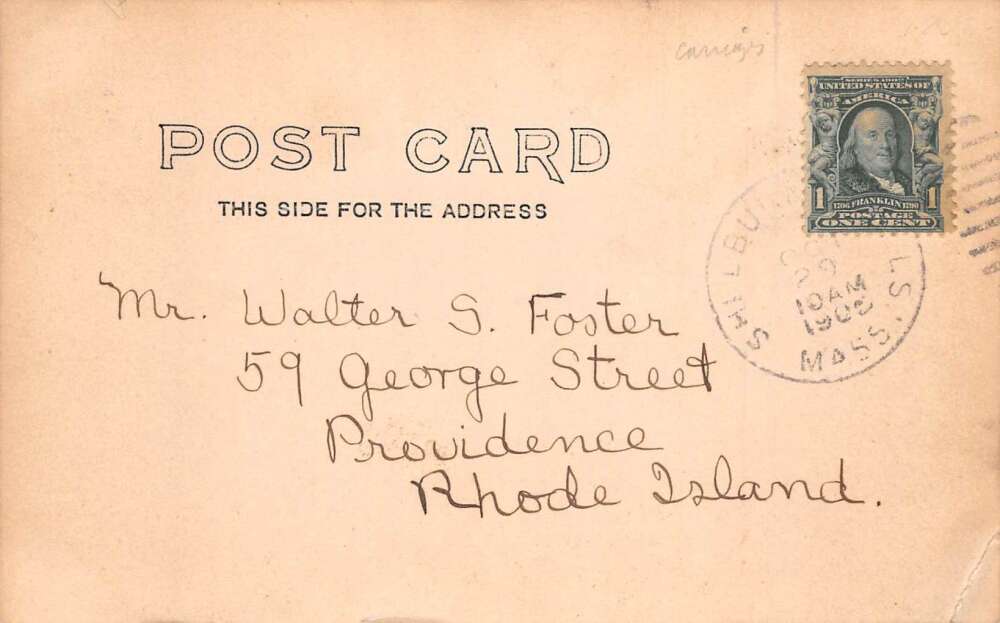 SERIES 1902
UNITED STATES OF
AMERICA
1 1706 FRANKLIN 1790 1
POSTAGE
ONE CENT
POST CARD
THIS SIDE FOR THE ADDRESS
29
10 AM
MASS.
Mr. Walter S. Foster
59 George Street
Providence
Rhode Island.